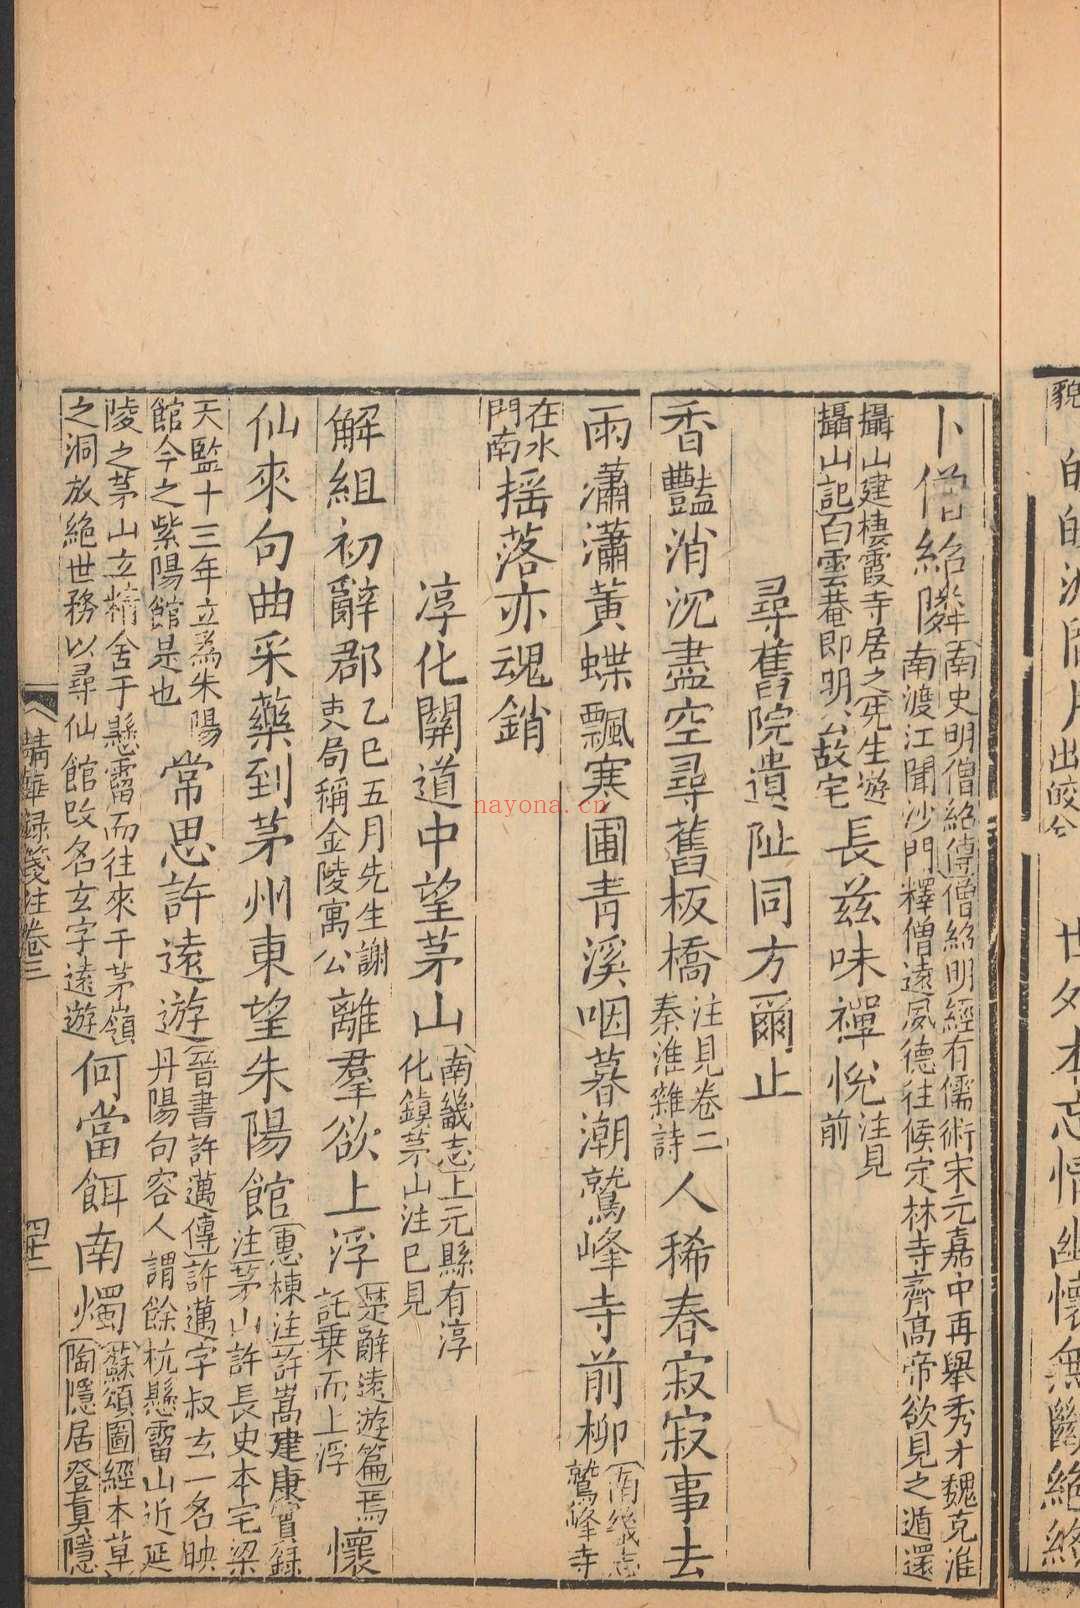 貌
的的
出皎公
世外本忘情幽懷無斷絕終
卜僧紹隣
南史明僧紹傳僧紹明經有儒術宋元嘉中再舉秀才魏克淮
南渡江聞沙門釋僧遠風德往候定林寺齊高帝欲見之遁還
攝山建棲霞寺居之先生遊
攝山記白雲菴即明公故宅
長兹味禪悅
注見
前
尋舊院遺阯同方爾止
香豔消沉盡空尋舊板橋
注見卷二
秦淮雜詩
人稀春寂寂事去
雨瀟瀟黃蝶飄寒圃青溪咽暮潮鷲峰寺前柳
南畿志
鷲峰寺
在水
門南
揺落亦魂銷
淳化關道中望茅山
南畿志上元縣有淳
化鎮茅山注已見
解組初辭郡
乙巳五月先生謝
吏局稱金陵寓公
離羣欲上浮
楚辭遠遊篇焉
託乗而上浮
懷
仙來句曲采藥到茅州東望朱陽館
惠棟注許嵩建康實録
注茅山許長史本宅梁
天監十三年立為朱陽
館今之紫陽館是也
常思許遠遊
晉書許邁傳許邁字叔玄一名映
丹陽句容人謂餘杭懸霤山近延
陵之茅山立精舍于懸霤而往來于茅嶺
之洞放絶世務以尋仙館改名玄字遠遊
何當餌南燭
蘇頌圖經本草
陶隱居登真隱
精華録箋注卷三
四十二
nayona.cn